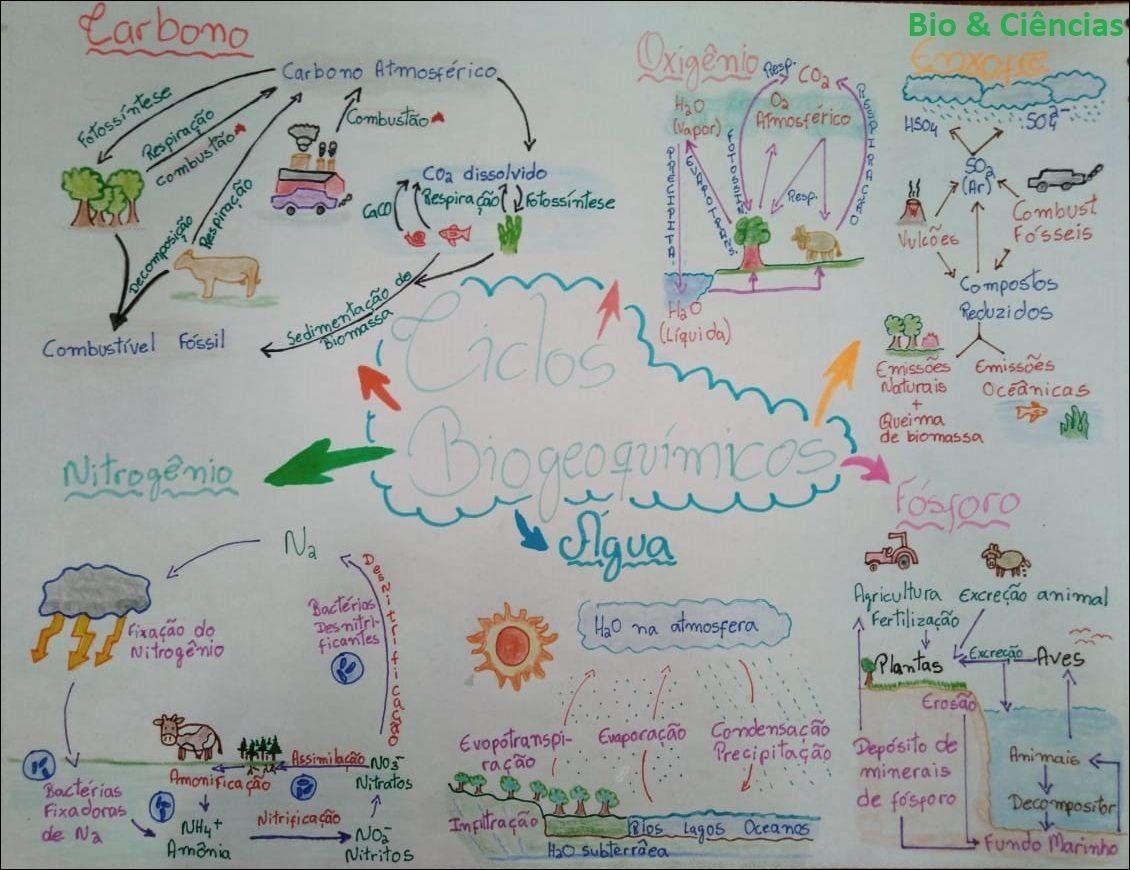 Bio & Ciências
Ciclos
Biogeoquímicos
Carbono
Carbono Atmosférico
Fotossíntese
Respiração
Combustão
Respiração
Decomposição
Combustão
CO2 dissolvido
CaCO
Respiração
Fotossíntese
Sedimentação do
Biomassa
Combustível Fóssil
Oxigênio
Resp.
CO2
H2O
(Vapor)
O2
Atmosférico
RESPIRAÇÃO
PRECIPITA.
EVAPOTRANS.
FOTOSSÍN.
Resp.
H2O
(Líquida)
Enxofre
HSO4
SO4 2-
SO2
(Ar)
Vulcões
Combust
Fósseis
Compostos
Reduzidos
Emissões
Naturais
+
Queima
de biomassa
Emissões
Oceânicas
Nitrogênio
N2
Fixação do
Nitrogênio
Bactérias
Desnitri-
ficantes
Desnitrificação
Bactérias
Fixadoras
de N2
Amonificação
Assimilação
NO3-
Nitratos
NH4+
Amônia
Nitrificação
NO2-
Nitritos
Água
H2O na atmosfera
Evopotranspi-
ração
Evaporação
Condensação
Precipitação
Infiltração
Rios Lagos Oceanos
H2O subterrâea
Fósforo
Agricultura
Fertilização
Excreção animal
Plantas
Excreção
Aves
Erosão
Depósito de
minerais
de fósforo
Animais
Decompositor
Fundo Marinho